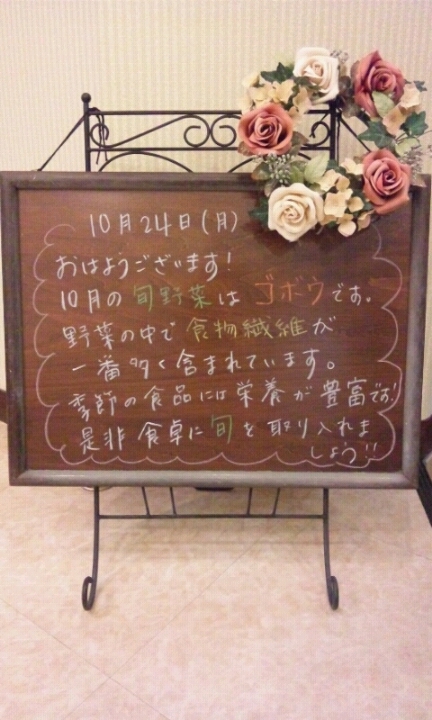 10月24日(月)
おはようございます!
10月の旬野菜はゴボウです。
野菜の中で食物繊維が
一番多く含まれています。
季節の食品には栄養が豊富です!
是非食卓に旬を取り入れま
しょう!!